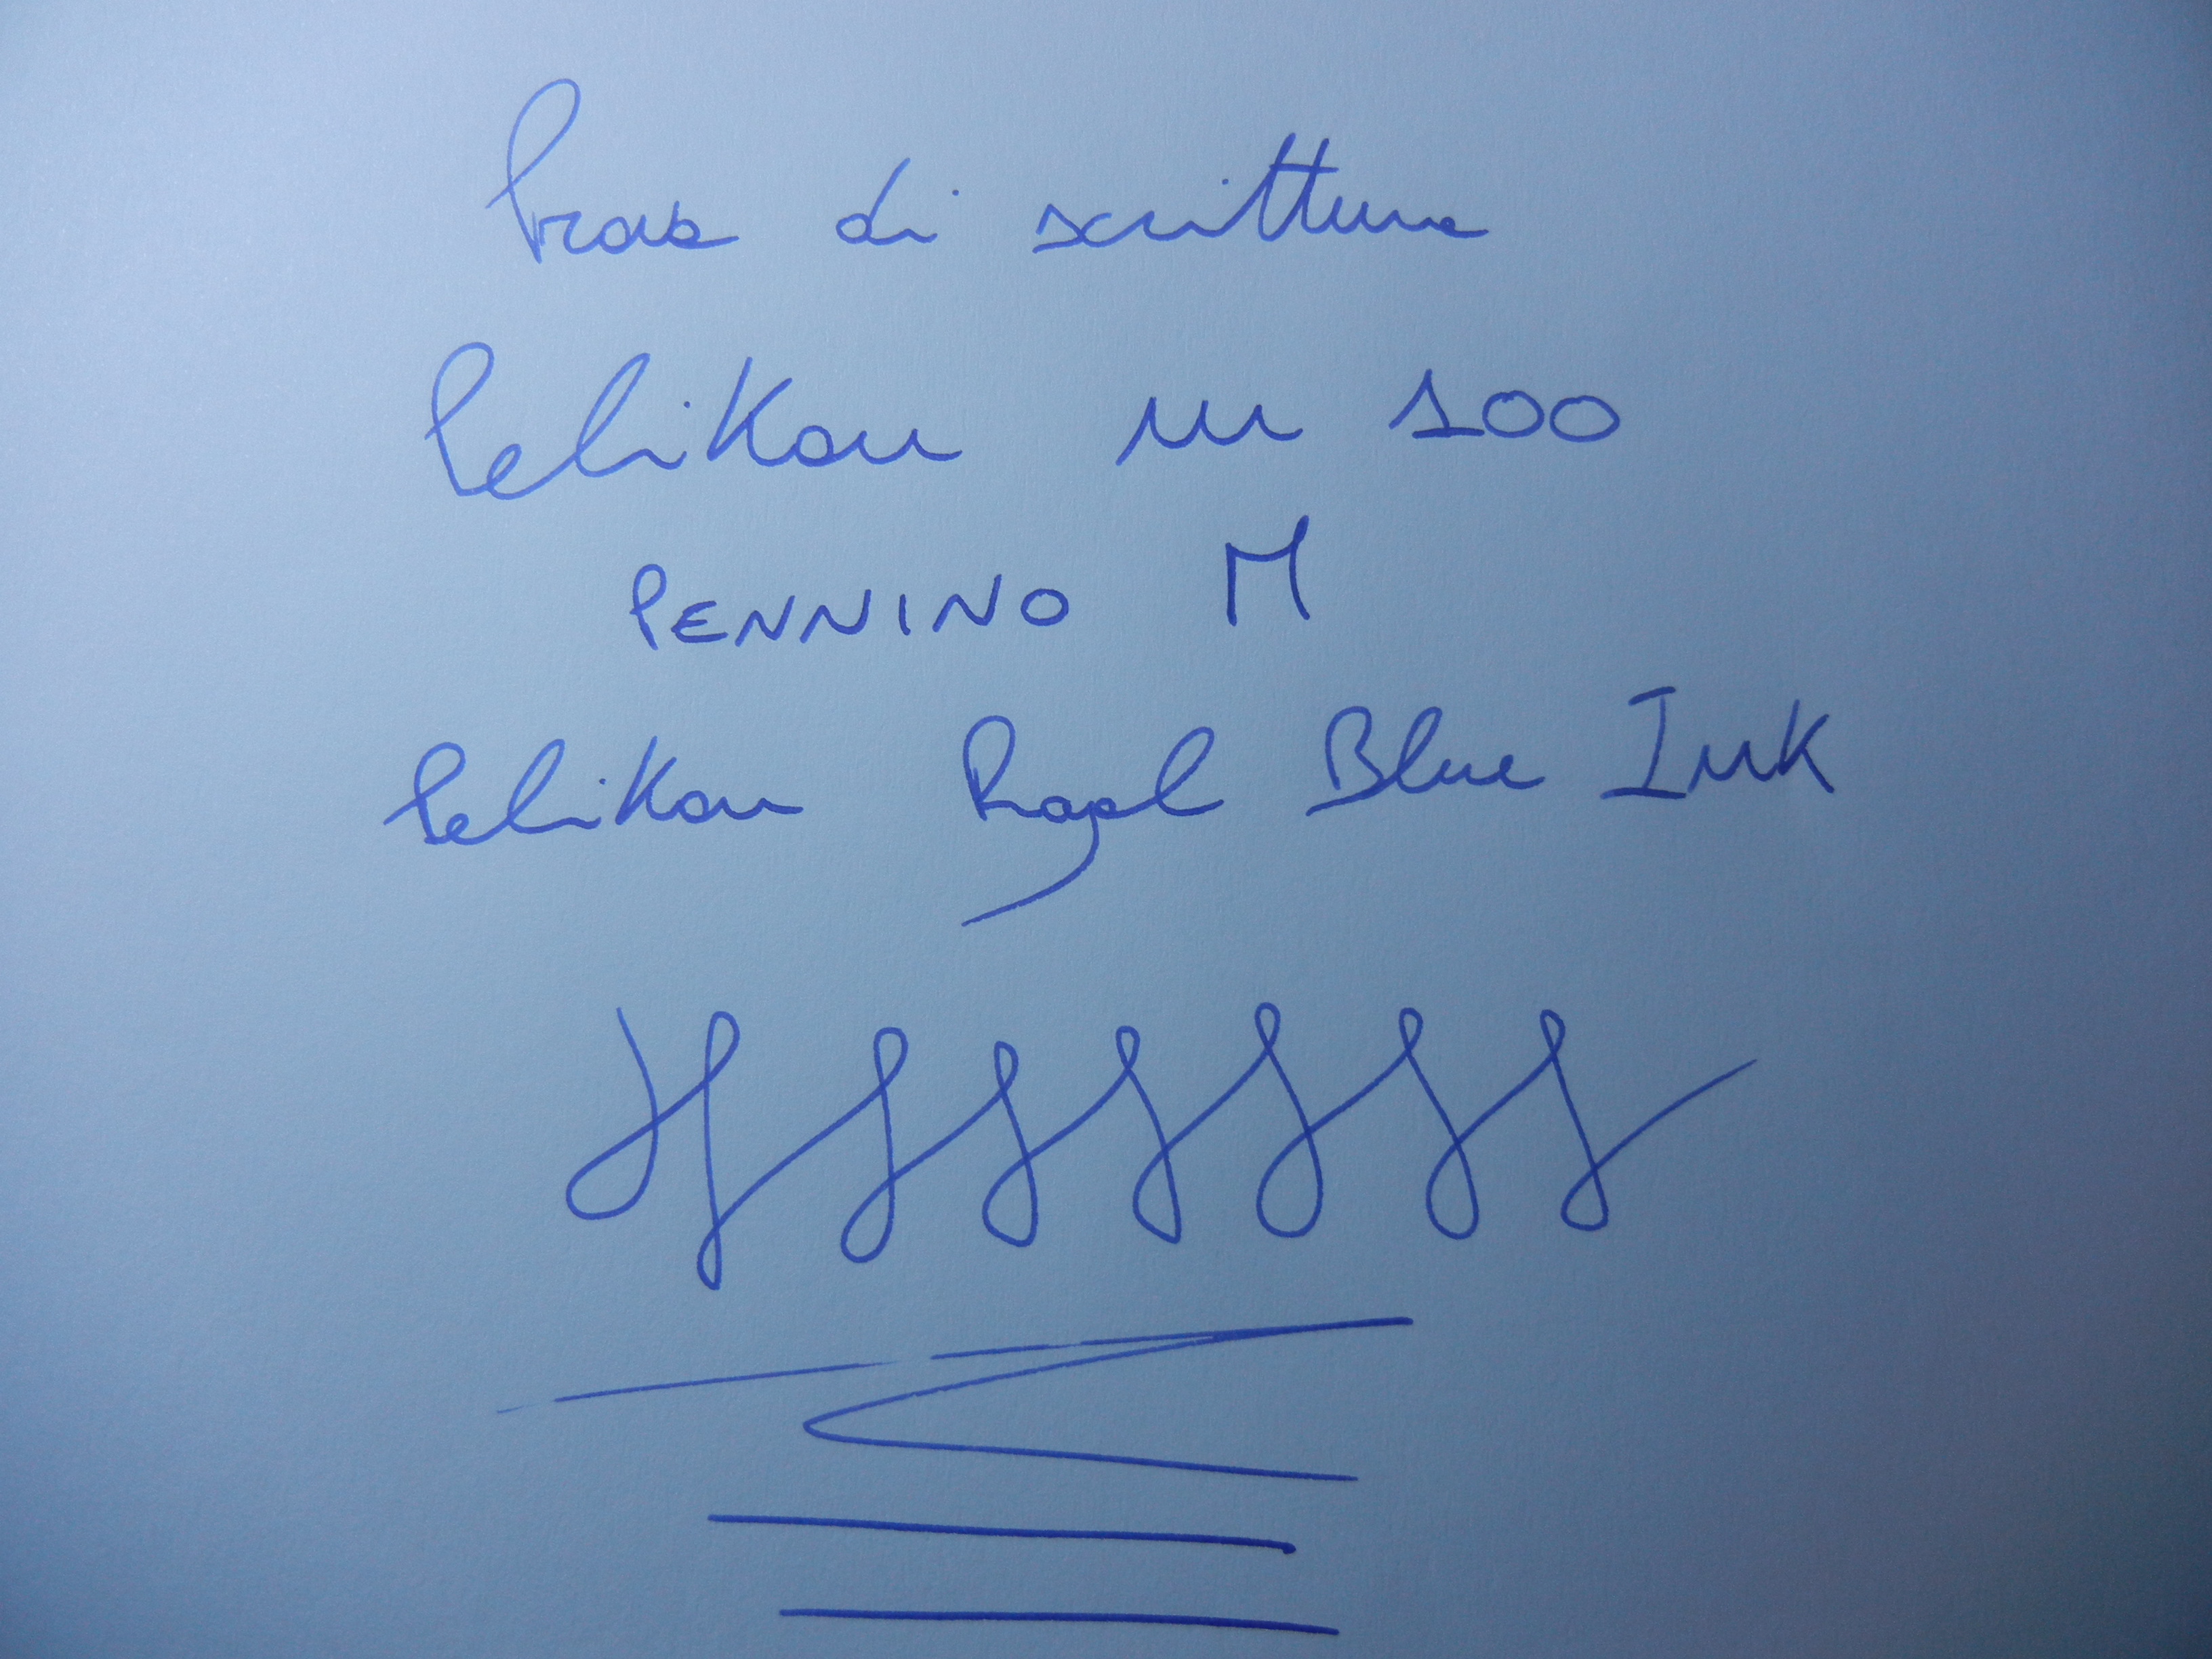 Prova di scrittura
Pelikan m 100
PENNINO M
Pelikan Royal Blue Ink